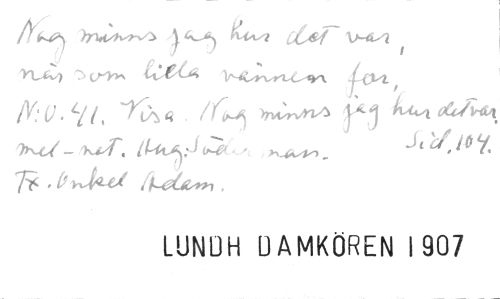 Nog minns jag hur det var,
när som lilla vännen for,
N:o. 41. Visa. Nog minns jag hur det var.
mel-nat. Aug. Söderman. Sid. 104.
Tx. Onkel Adam.
LUNDH DAMKÖREN 1907